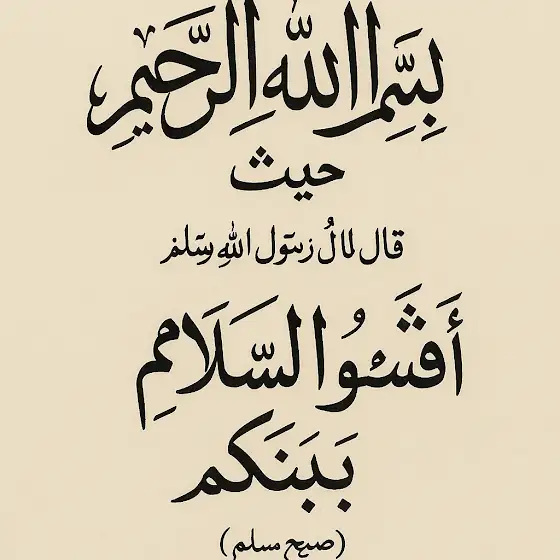 بِسَِّمِ االلهِ الِرَّحَيمِ
حيث
قال لالُ رسَول اللهِ وسَلم
أَفَشُوا السَّلَامِم
بَبَنَكم
(صيح مسلم)